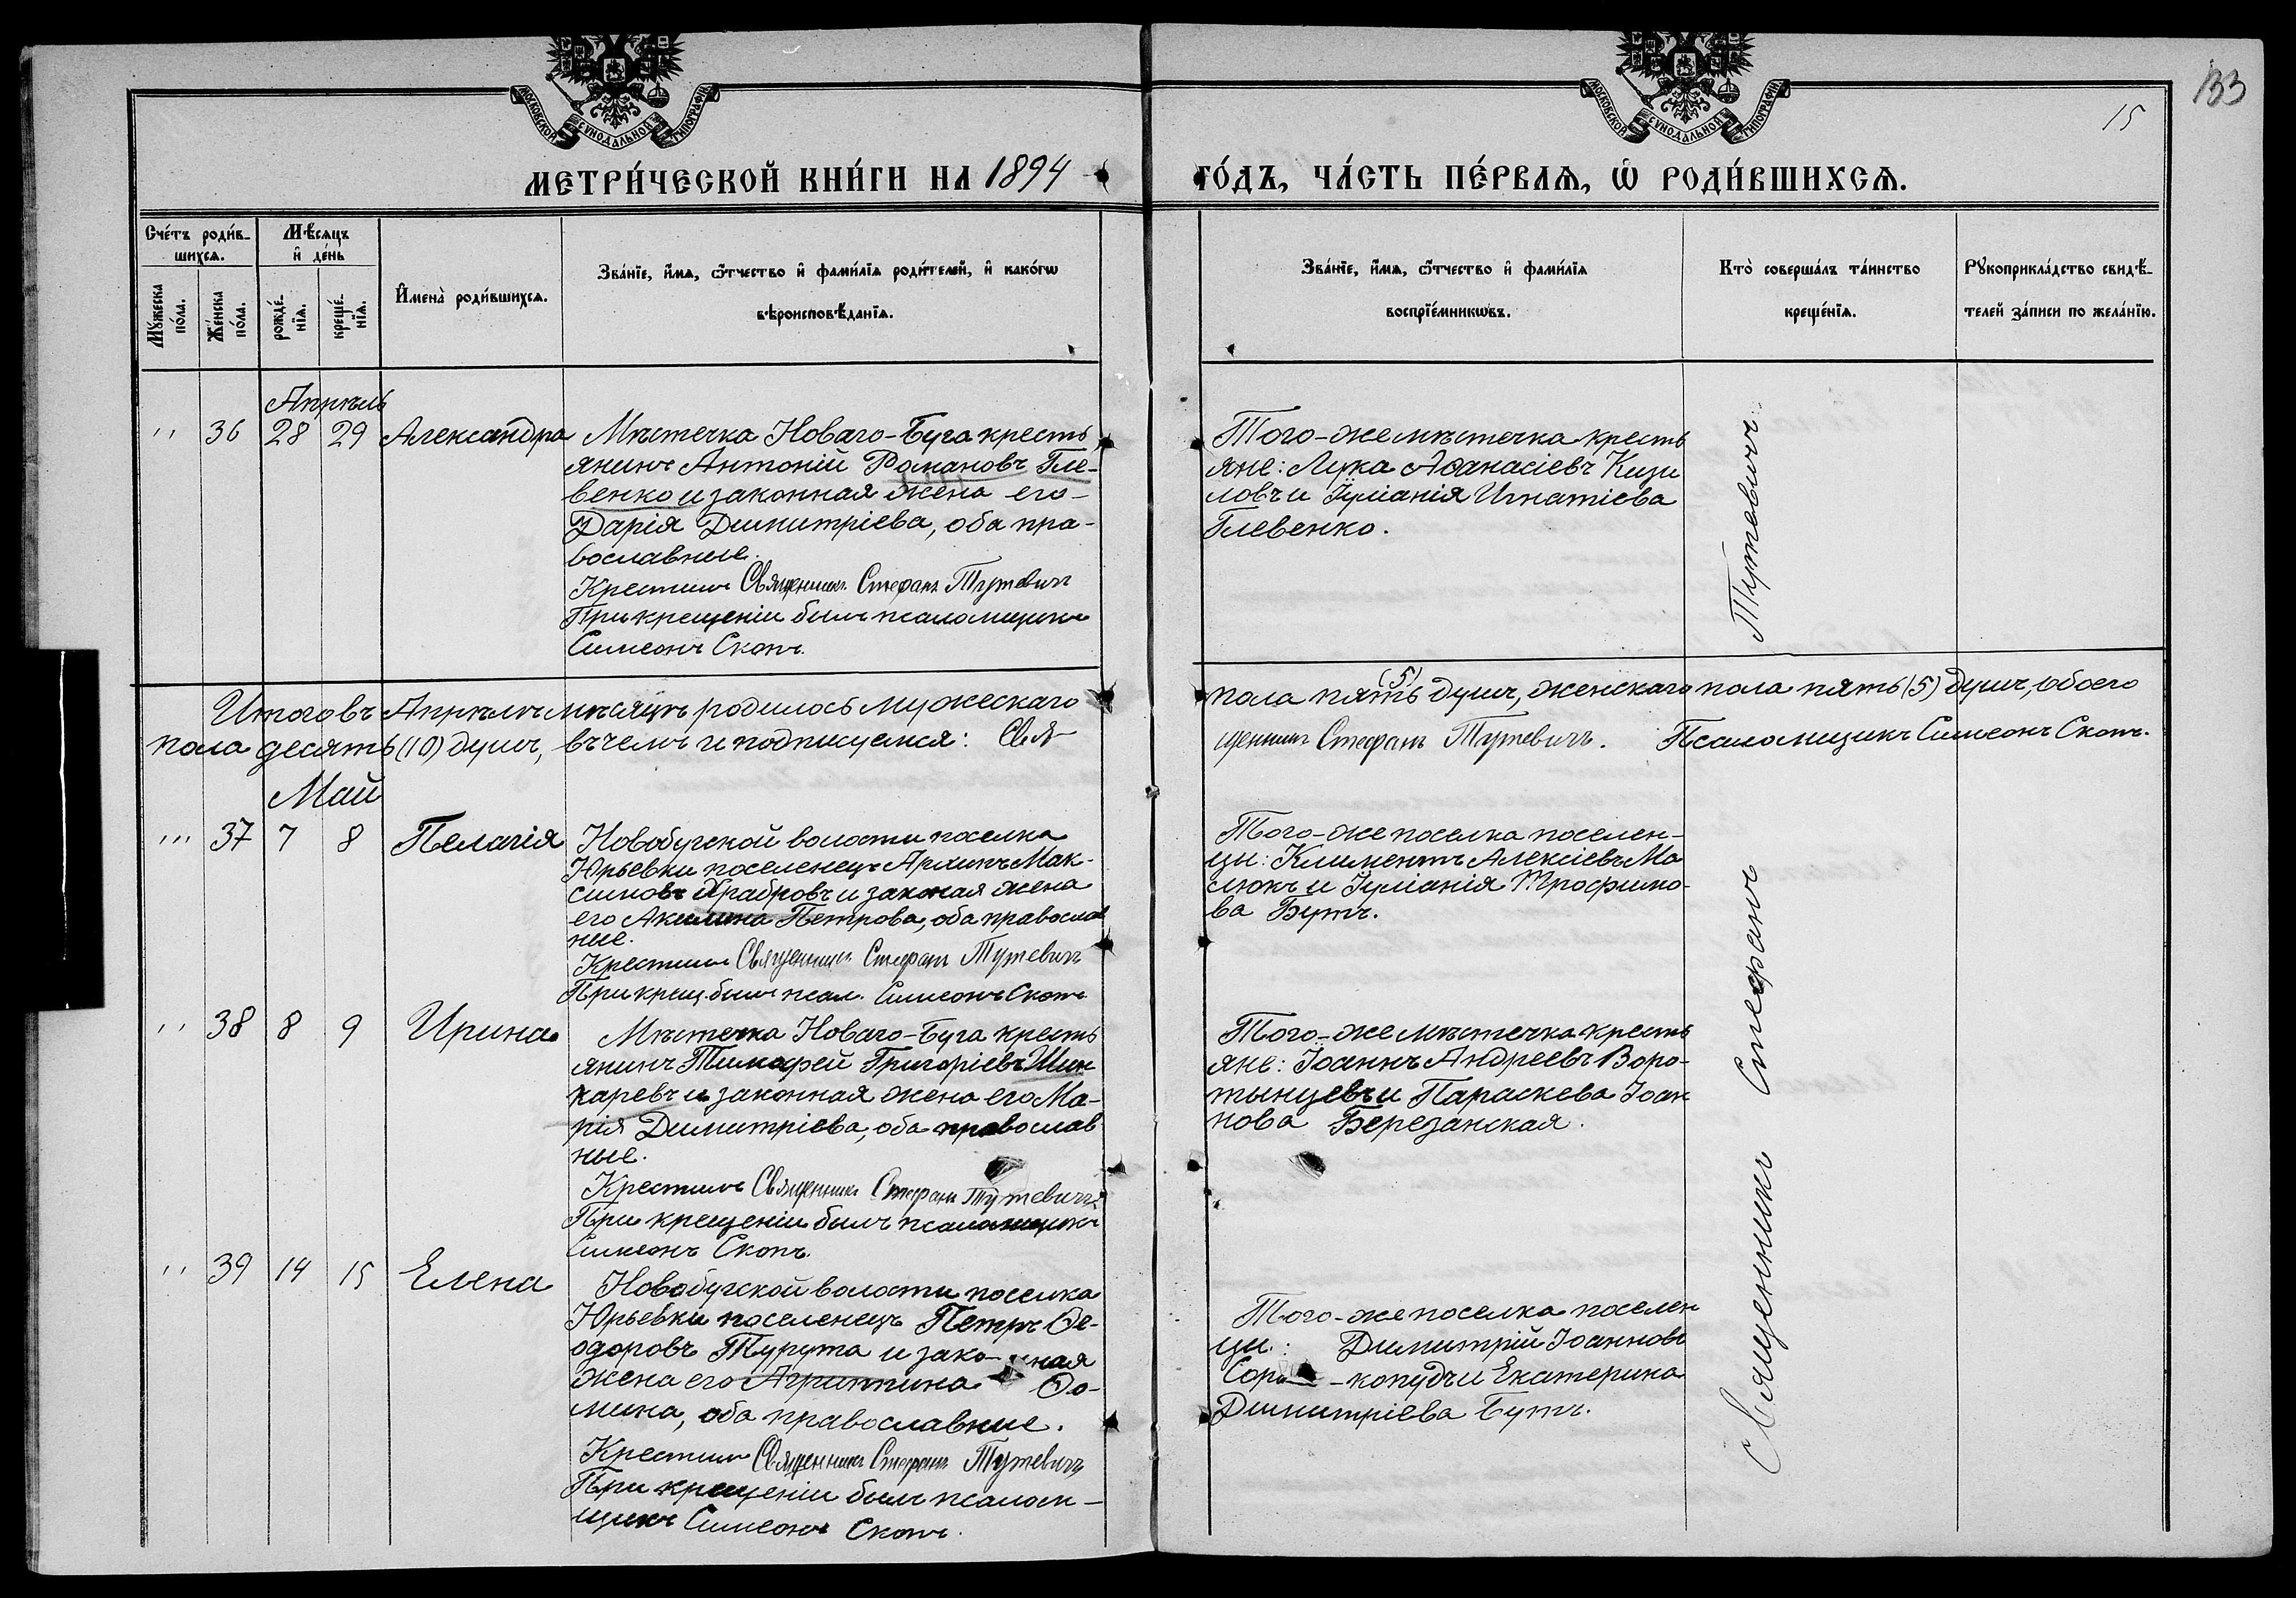 133
15
МОСКОВСКОЙ СУНОДАЛЬНОЙ ТИПОГРАФІИ
МОСКОВСКОЙ СУНОДАЛЬНОЙ ТИПОГРАФІИ
МЕТРИ́ЧЕСКОЙ КНИ́ГИ НА 1894 ГО́ДЪ, ЧА́СТЬ ПЕ́РВАѦ, Ѡ҆ РОДИ́ВШИХСѦ.
Счéтъ роди́в-
шихсѧ.
Мꙋ́жеска по́ла.
Же́нска по́ла.
Мѣ́сяцъ
и҆ де́нь
рожде́-
нїѧ.
креще́-
нїѧ.
И҆мена̀ роди́вшихсѧ.
Зва́нїе, и҆́мѧ, ѻ҆́тчество и҆ фами́лїѧ роди́телей, и҆ како́гѡ
вѣроисповѣ́данїѧ.
Зва́нїе, и҆́мѧ, ѻ҆́тчество и҆ фами́лїѧ
воспрїе́мникѡвъ.
Кто̀ соверша́лъ та́инство
креще́нїѧ.
Рꙋкоприкла́дство свидѣ́-
телей за́писи по жела́нїю.
Апрѣль
" 36 28 29 Александра
Мѣстечка Новаго-Буга кресть
янинъ Антоній Романовъ Гле-
венко и законная жена его
Дарія Димитріева, оба пра-
вославные.
Крестилъ Священникъ Стефанъ Тутевичъ
При крещеніи былъ псаломщикъ
Симеонъ Скопъ.
Того-же мѣстечка кресть
яне: Лука Аѳанасіевъ Кизи
ловъ и Іуліанія Игнатіева
Глевенко.
Итого въ Апрѣлѣ мѣсяцѣ родилось мужескаго пола пять (5) душъ, женскаго пола пять (5) душъ, обоего
пола десять (10) душъ, въ чемъ и подписуемся: Свя-щенникъ Стефанъ Тутевичъ. Псаломщикъ Симеонъ Скопъ.
Май
"' 37 7 8 Пелагія
Новобугской волости поселка
Юрьевки поселенецъ Мак-
симовъ Храбровъ и законая жена
его Акилина Петрова, оба православ
ные.
Крестилъ Священникъ Стефанъ Тутевичъ
При крещ. былъ псал. Симеонъ Скопъ
Того-же поселка поселен-
цы: Климентъ Алексіевъ Ма
слюкъ и Іуліанія Трофимо-
ва Бутъ.
" 38 8 9 Ирина
Мѣстечка Новаго-Буга кресть
янинъ Тимофей Григоріевъ Шин
каревъ и законная жена его Ма-
рія Димитріева, оба православ
ные.
Крестилъ Священникъ Стефанъ Тутевичъ
При крещеніи былъ псаломщикъ
Симеонъ Скопъ.
Того-же мѣстечка кресть
яне: Іоаннъ Андреевъ Воро-
тынцевъ и Параскева Іоан
нова Березанская.
" 39 14 15 Елена
Новобугской волости поселка
Юрьевки поселенецъ Петръ Ѳе-
одоровъ Турута и зако-нная
жена его Агриппина Ѳо-
мина, оба православные.
Крестилъ Священникъ Стефанъ Тутевичъ
При крещеніи былъ псалом-
щикъ Симеонъ Скопъ.
Того-же поселка поселен
цы: Димитрій Іоанновъ
-копудъ и Екатерина
Димитріева Бутъ.
Священникъ Стефанъ Тутевичъ